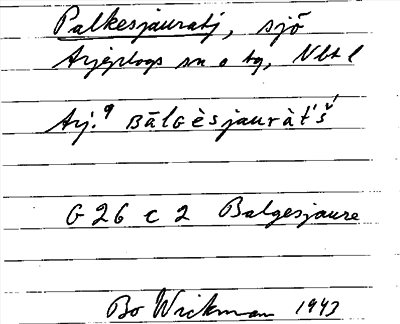 Palkesjauratj, sjö
Arjeplogs sn o tg, Nbt l
Arj.9 Bālgèsjauràt́š́
G 26 c 2 Balgesjaure
Bo Wickman 1943